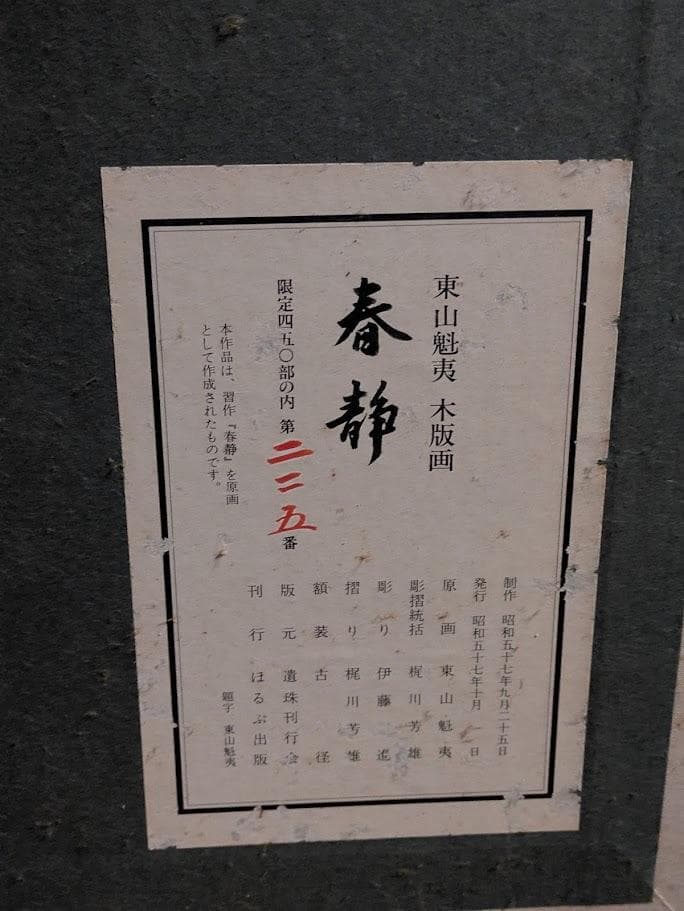 東山魁夷 木版画
春静
限定四五〇部の内 第二二五番
本作品は、習作『春静』を原画
として作成されたものです。
制作 昭和五十七年九月二十五日
発行 昭和五十七年十月一日
原画 東山魁夷
彫摺統括 梶川芳雄
彫り 伊藤進
摺り 梶川芳雄
額装 古径
版元 遺珠刊行会
刊行 ほるぷ出版
題字 東山魁夷